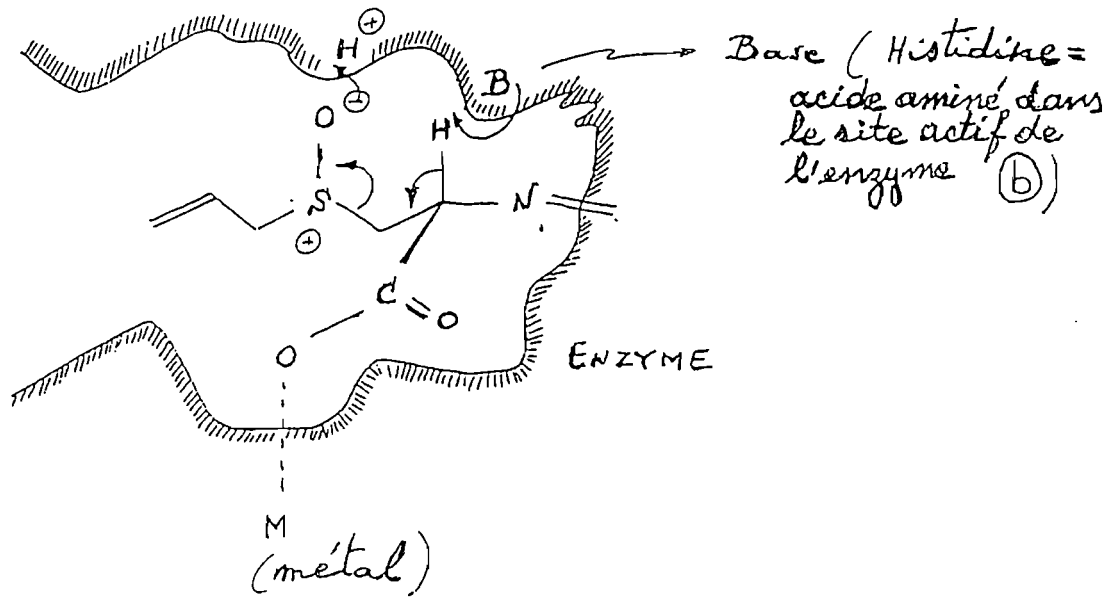 H ⊕
⊖
Base (Histidine =
acide aminé dans
le site actif de
l'enzyme ⓑ)
B
O
H
S
⊕
N
C
O
O
ENZYME
M
(métal)